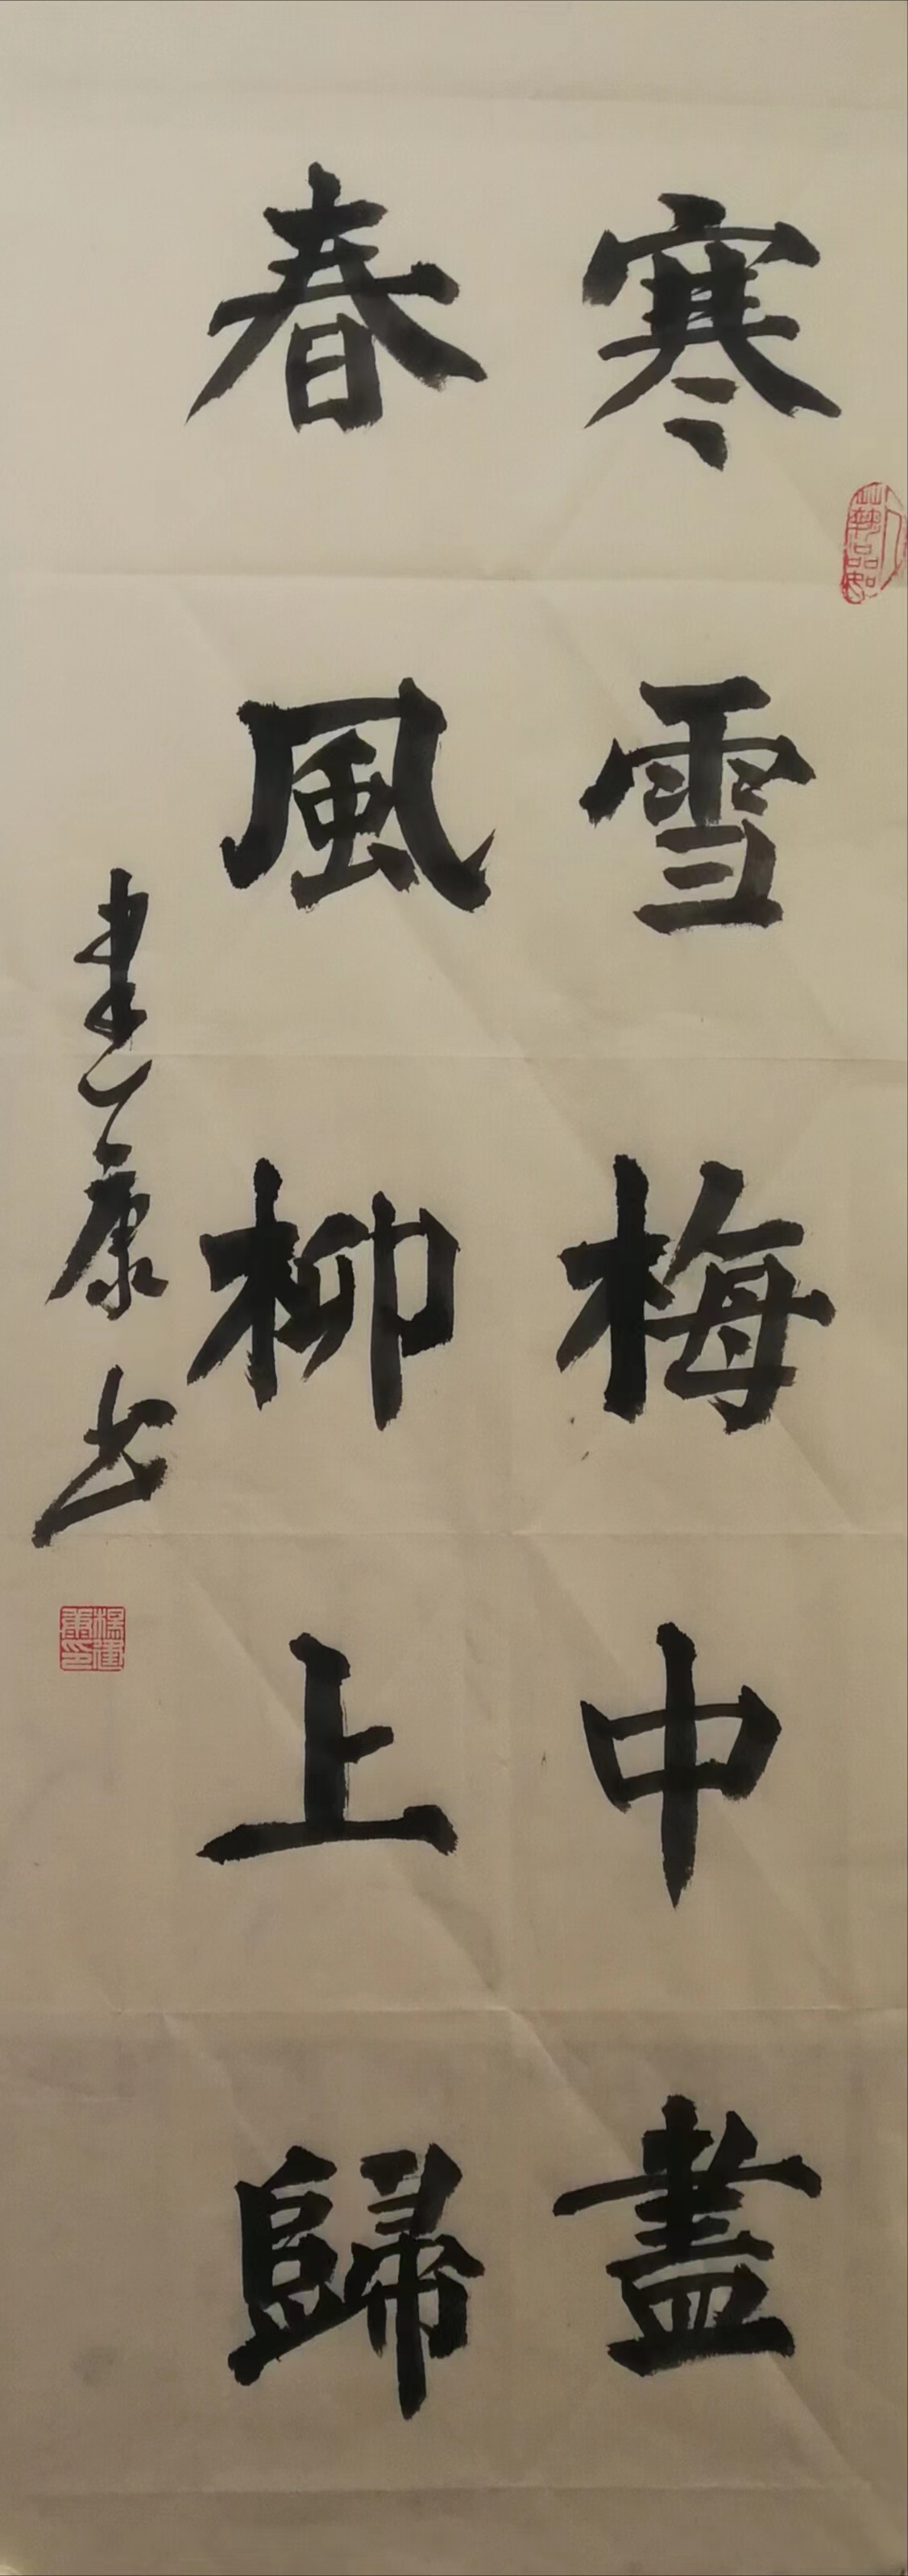 寒雪梅中盡
春風柳上歸
建康书